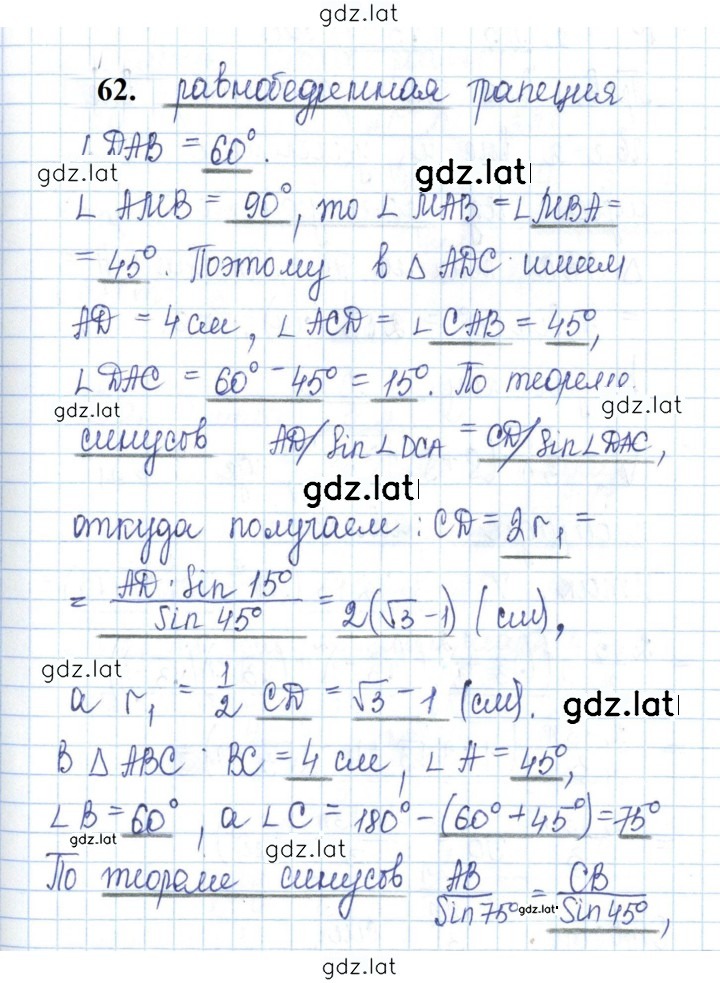 gdz.lat
62. равнобедренная трапеция
1. DAB = 60°.
gdz.lat
gdz.lat
∟ AMB = 90°, то ∟ MAB = ∟ MBA =
= 45°. Поэтому в △ ADC имеем
AD = 4 см, ∟ ACD = ∟ CAB = 45°,
∟ DAC = 60° - 45° = 15°. По теореме
gdz.lat
gdz.lat
синусов AD/Sin ∟DCA = CD/Sin∟DAC,
gdz.lat
откуда получаем: CD = 2r₁ =
= AD · Sin 15° / Sin 45° = 2(√3 - 1) (см),
gdz.lat
а r₁ = 1/2 CD = √3 - 1 (см).
gdz.lat
В △ ABC BC = 4 см, ∟ A = 45°,
∟ B = 60°, а ∟ C = 180° - (60° + 45°) = 75°
gdz.lat
gdz.lat
По теореме синусов AB/Sin 75° = CB/Sin 45°,
gdz.lat
gdz.lat